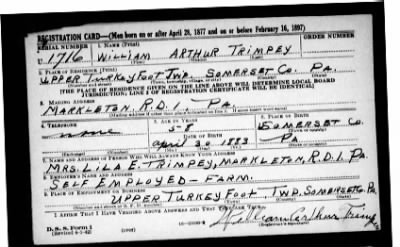 REGISTRATION CARD—(Men born on or after April 28, 1877 and on or before February 16, 1897)
SERIAL NUMBER 1. NAME (Print) ORDER NUMBER
U 1716 WILLIAM ARTHUR TRIMPEY
(First) (Middle) (Last)
2. PLACE OF RESIDENCE (Print)
UPPER TURKEYFOOT TWP. SOMERSET CO. PA.
(Number and street) (Town, township, village, or city) (County) (State)
[THE PLACE OF RESIDENCE GIVEN ON THE LINE ABOVE WILL DETERMINE LOCAL BOARD
JURISDICTION; LINE 2 OF REGISTRATION CERTIFICATE WILL BE IDENTICAL]
3. MAILING ADDRESS
MARKLETON, R.D.1. PA.
[Mailing address if other than place indicated on line 2. If same insert word same]
4. TELEPHONE 5. AGE IN YEARS 6. PLACE OF BIRTH
none 58 SOMERSET CO.
DATE OF BIRTH (Town or county)
April 30 1883 PA
(Exchange) (Number) (Mo.) (Day) (Yr.) (State or country)
7. NAME AND ADDRESS OF PERSON WHO WILL ALWAYS KNOW YOUR ADDRESS
MRS. LILA E. TRIMPEY, MARKLETON, R.D.1, PA.
8. EMPLOYER'S NAME AND ADDRESS
SELF EMPLOYED - FARM.
9. PLACE OF EMPLOYMENT OR BUSINESS
UPPER TURKEYFOOT, TWP. SOMERSET CO. PA
(Number and street or R. F. D. number) (Town) (County) (State)
I AFFIRM THAT I HAVE VERIFIED ABOVE ANSWERS AND THAT THEY ARE TRUE.
D. S. S. Form 1
(Revised 4-1-42)
William Arthur